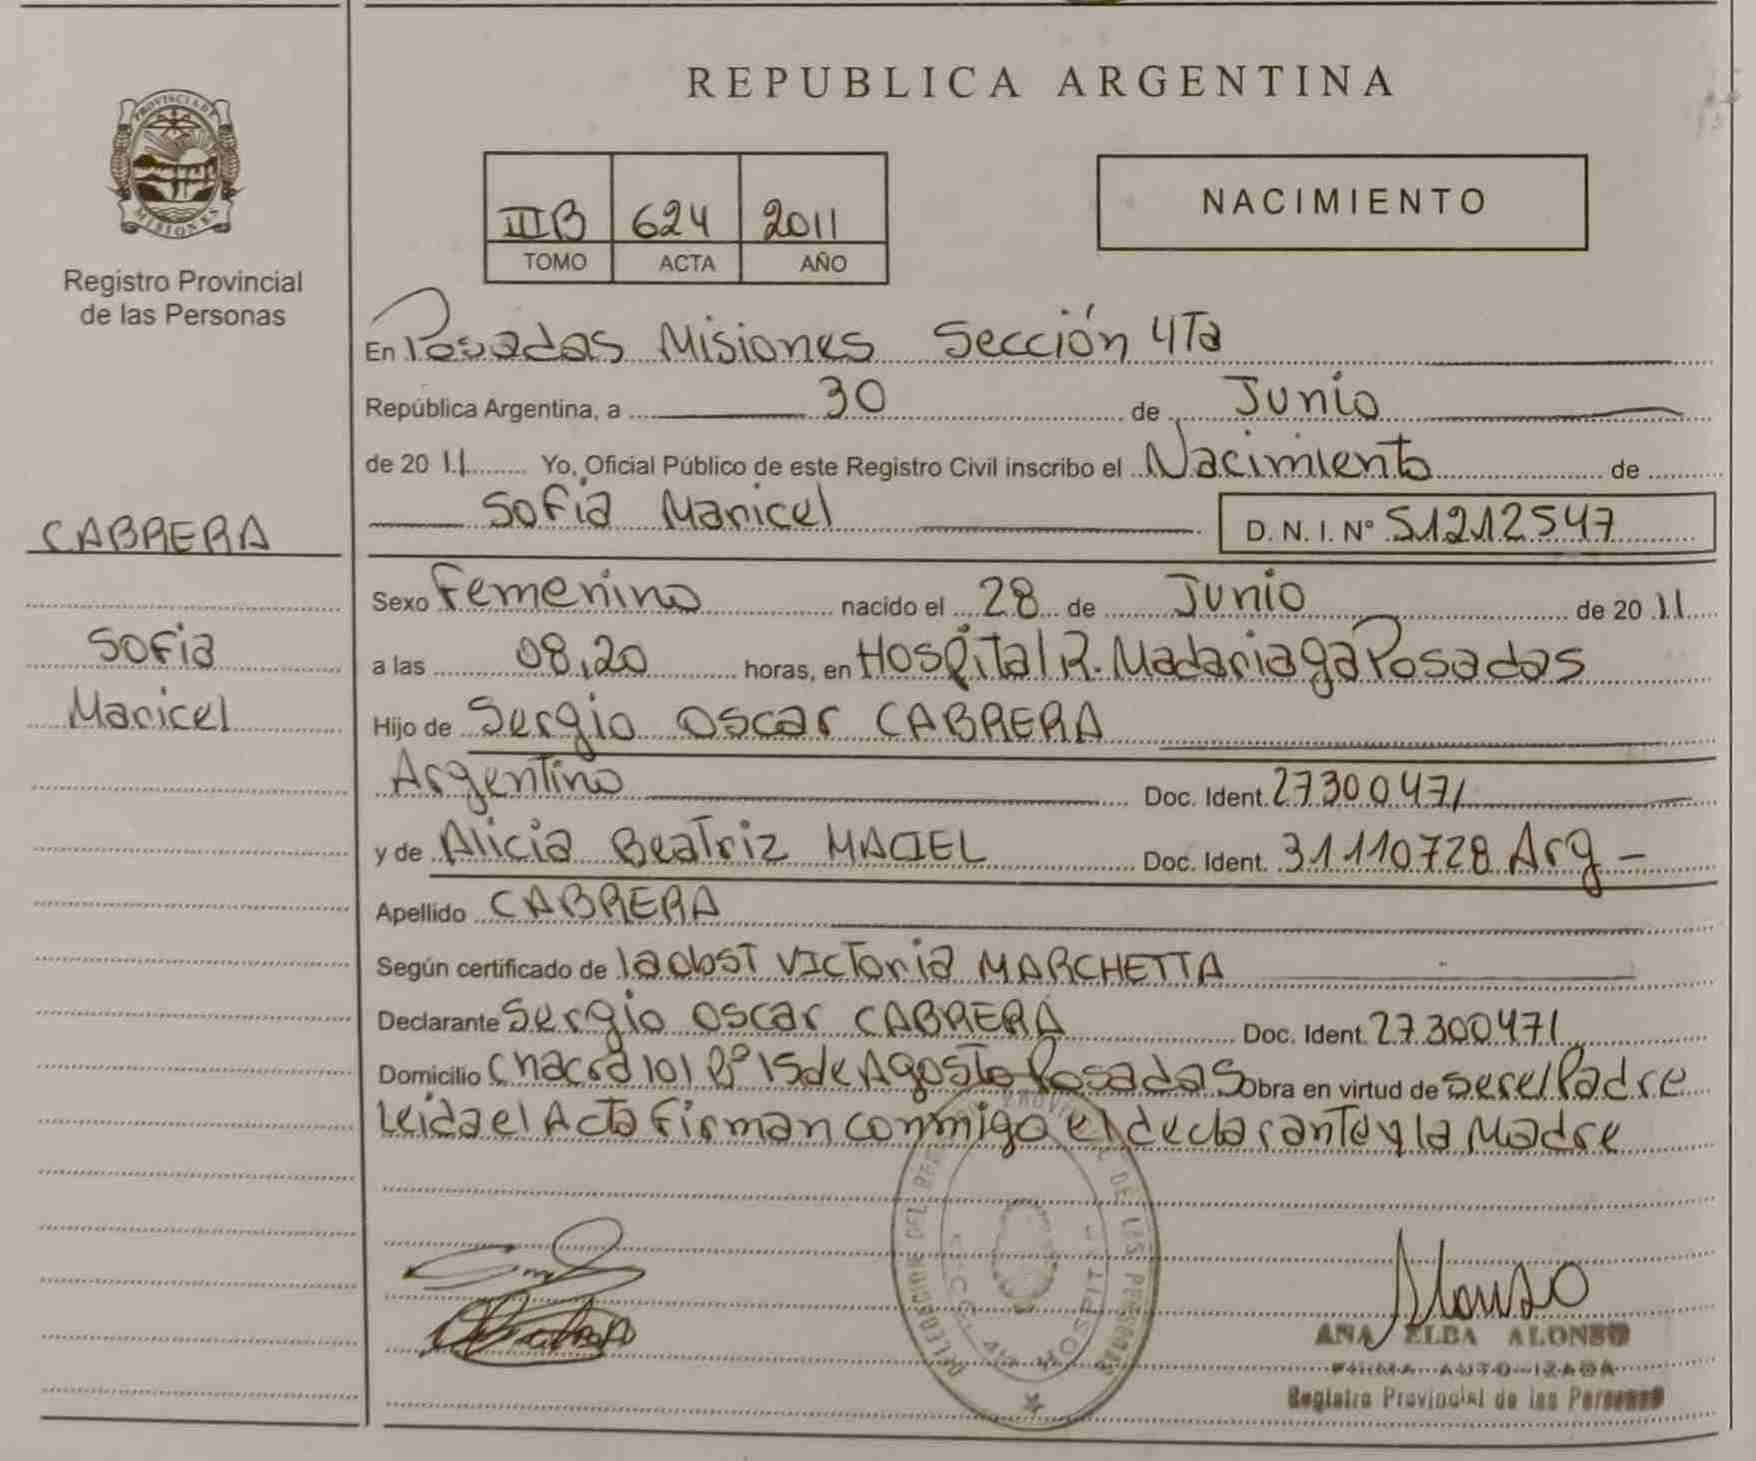 REPUBLICA ARGENTINA
PROVINCIA DE
MISIONES
Registro Provincial
de las Personas
IIIB 624 2011
TOMO ACTA AÑO
NACIMIENTO
En Posadas Misiones Sección 4Ta
República Argentina, a 30 de Junio
de 2011 Yo, Oficial Público de este Registro Civil inscribo el Nacimiento de
Sofia Maricel D. N. I. Nº 51212547
CABRERA
Sofia
Maricel
Sexo Femenino nacido el 28 de Junio de 2011
a las 08,20 horas, en Hospital R. Madariaga Posadas
Hijo de Sergio Oscar CABRERA
Argentino Doc. Ident. 27300471
y de Alicia Beatriz MACIEL Doc. Ident. 31110728 Arg -
Apellido CABRERA
Según certificado de la obst Victoria MARCHETTA
Declarante Sergio Oscar CABRERA Doc. Ident. 27300471
Domicilio Chacra 101 Bº 15 de Agosto Posadas Obra en virtud de ser el Padre
Leida el Acta Firman conmigo el declarante y la Madre
DE LAS PERSONAS
HOSPIT
Alonso
ANA ELBA ALONSO
FIRMA AUTORIZADA
Registro Provincial de las Personas